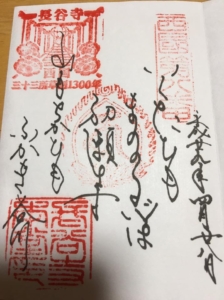 平成廿九年四月廿八日
西国第八番
いくたびも
まゐる心は
山もちかひも
ふかき谷川
長谷寺
三十三所草創1300年